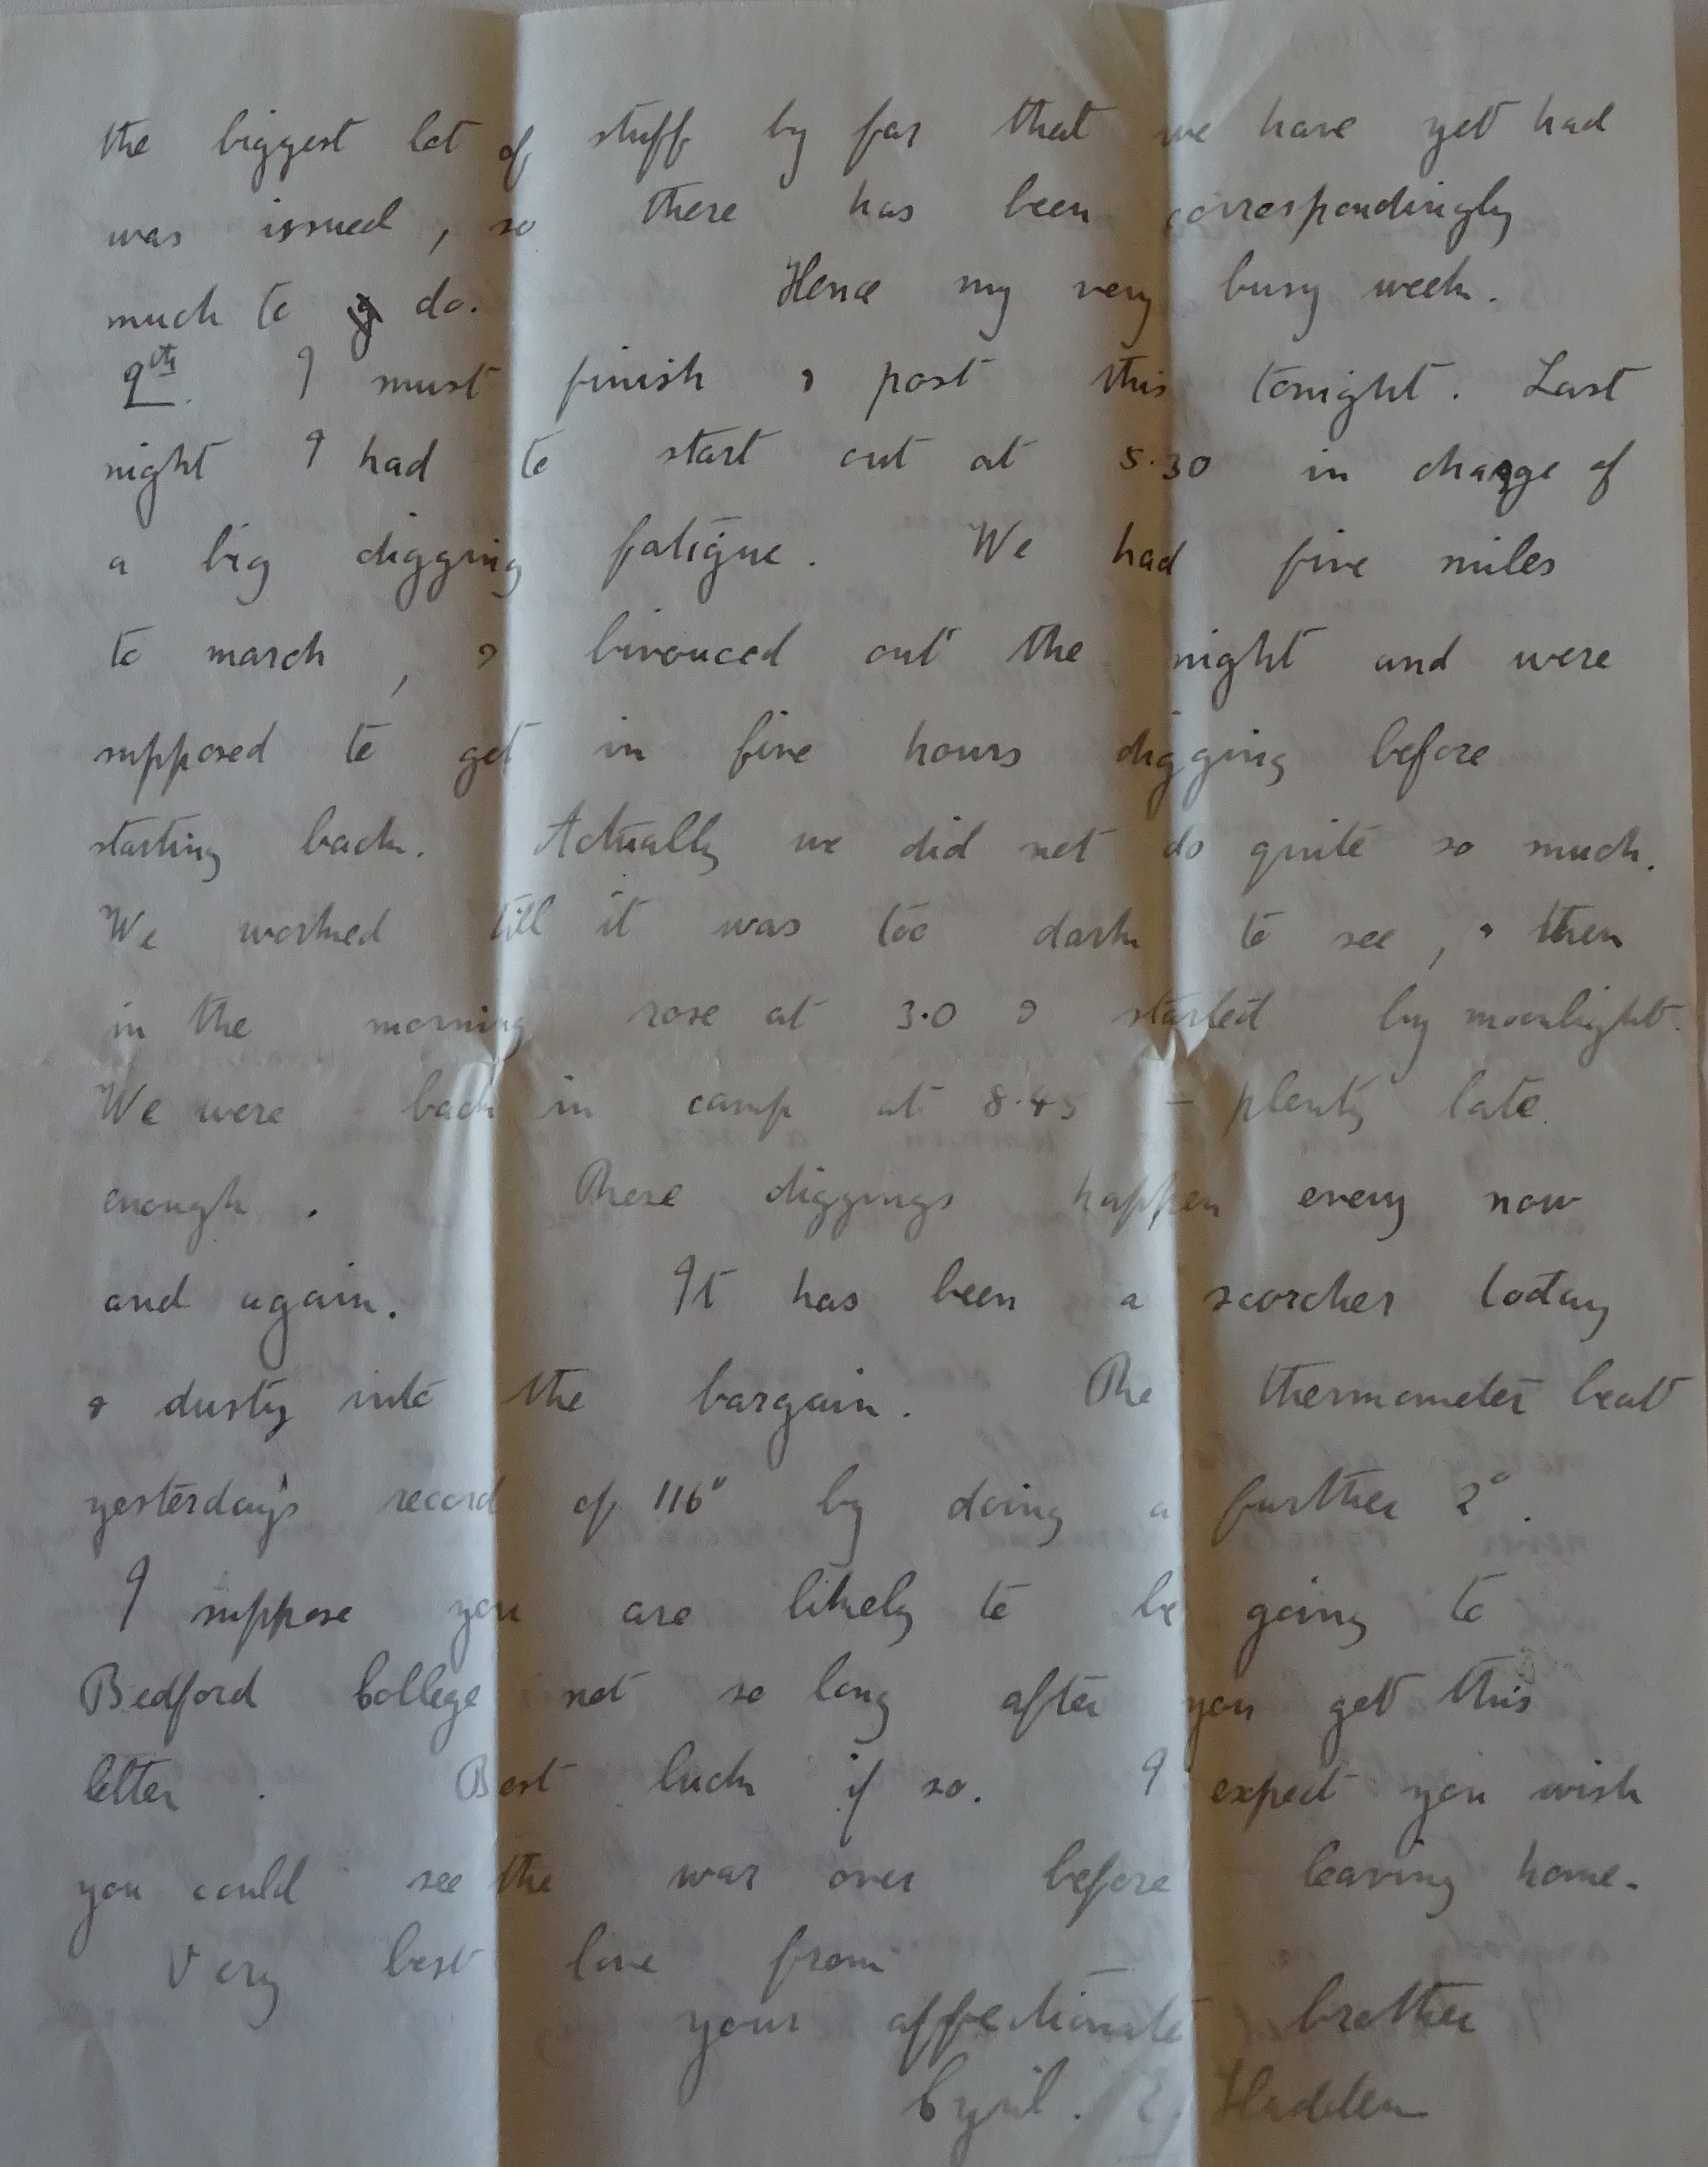 the biggest lot of stuff by far that we have yet had
was issued, so there has been correspondingly
much to do. Hence my very busy week.
9th. I must finish & post this tonight. Last
night I had to start out at 5.30 in charge of
a big digging fatigue. We had five miles
to march, & bivouced out the night and were
supposed to get in five hours digging before
starting back. Actually we did not do quite so much.
We worked till it was too dark to see, & then
in the morning rose at 3.0 & started by moonlight.
We were back in camp at 8.45 – plenty late
enough. These diggings happen every now
and again. It has been a scorcher today
& dusty into the bargain. The thermometer beat
yesterday's record of 116° by doing a further 2°.
I suppose you are likely to be going to
Bedford College not so long after you get this
letter. Best luck if so. I expect you wish
you could see the war over before leaving home.
Very best love from
your affectionate brother
Cyril.